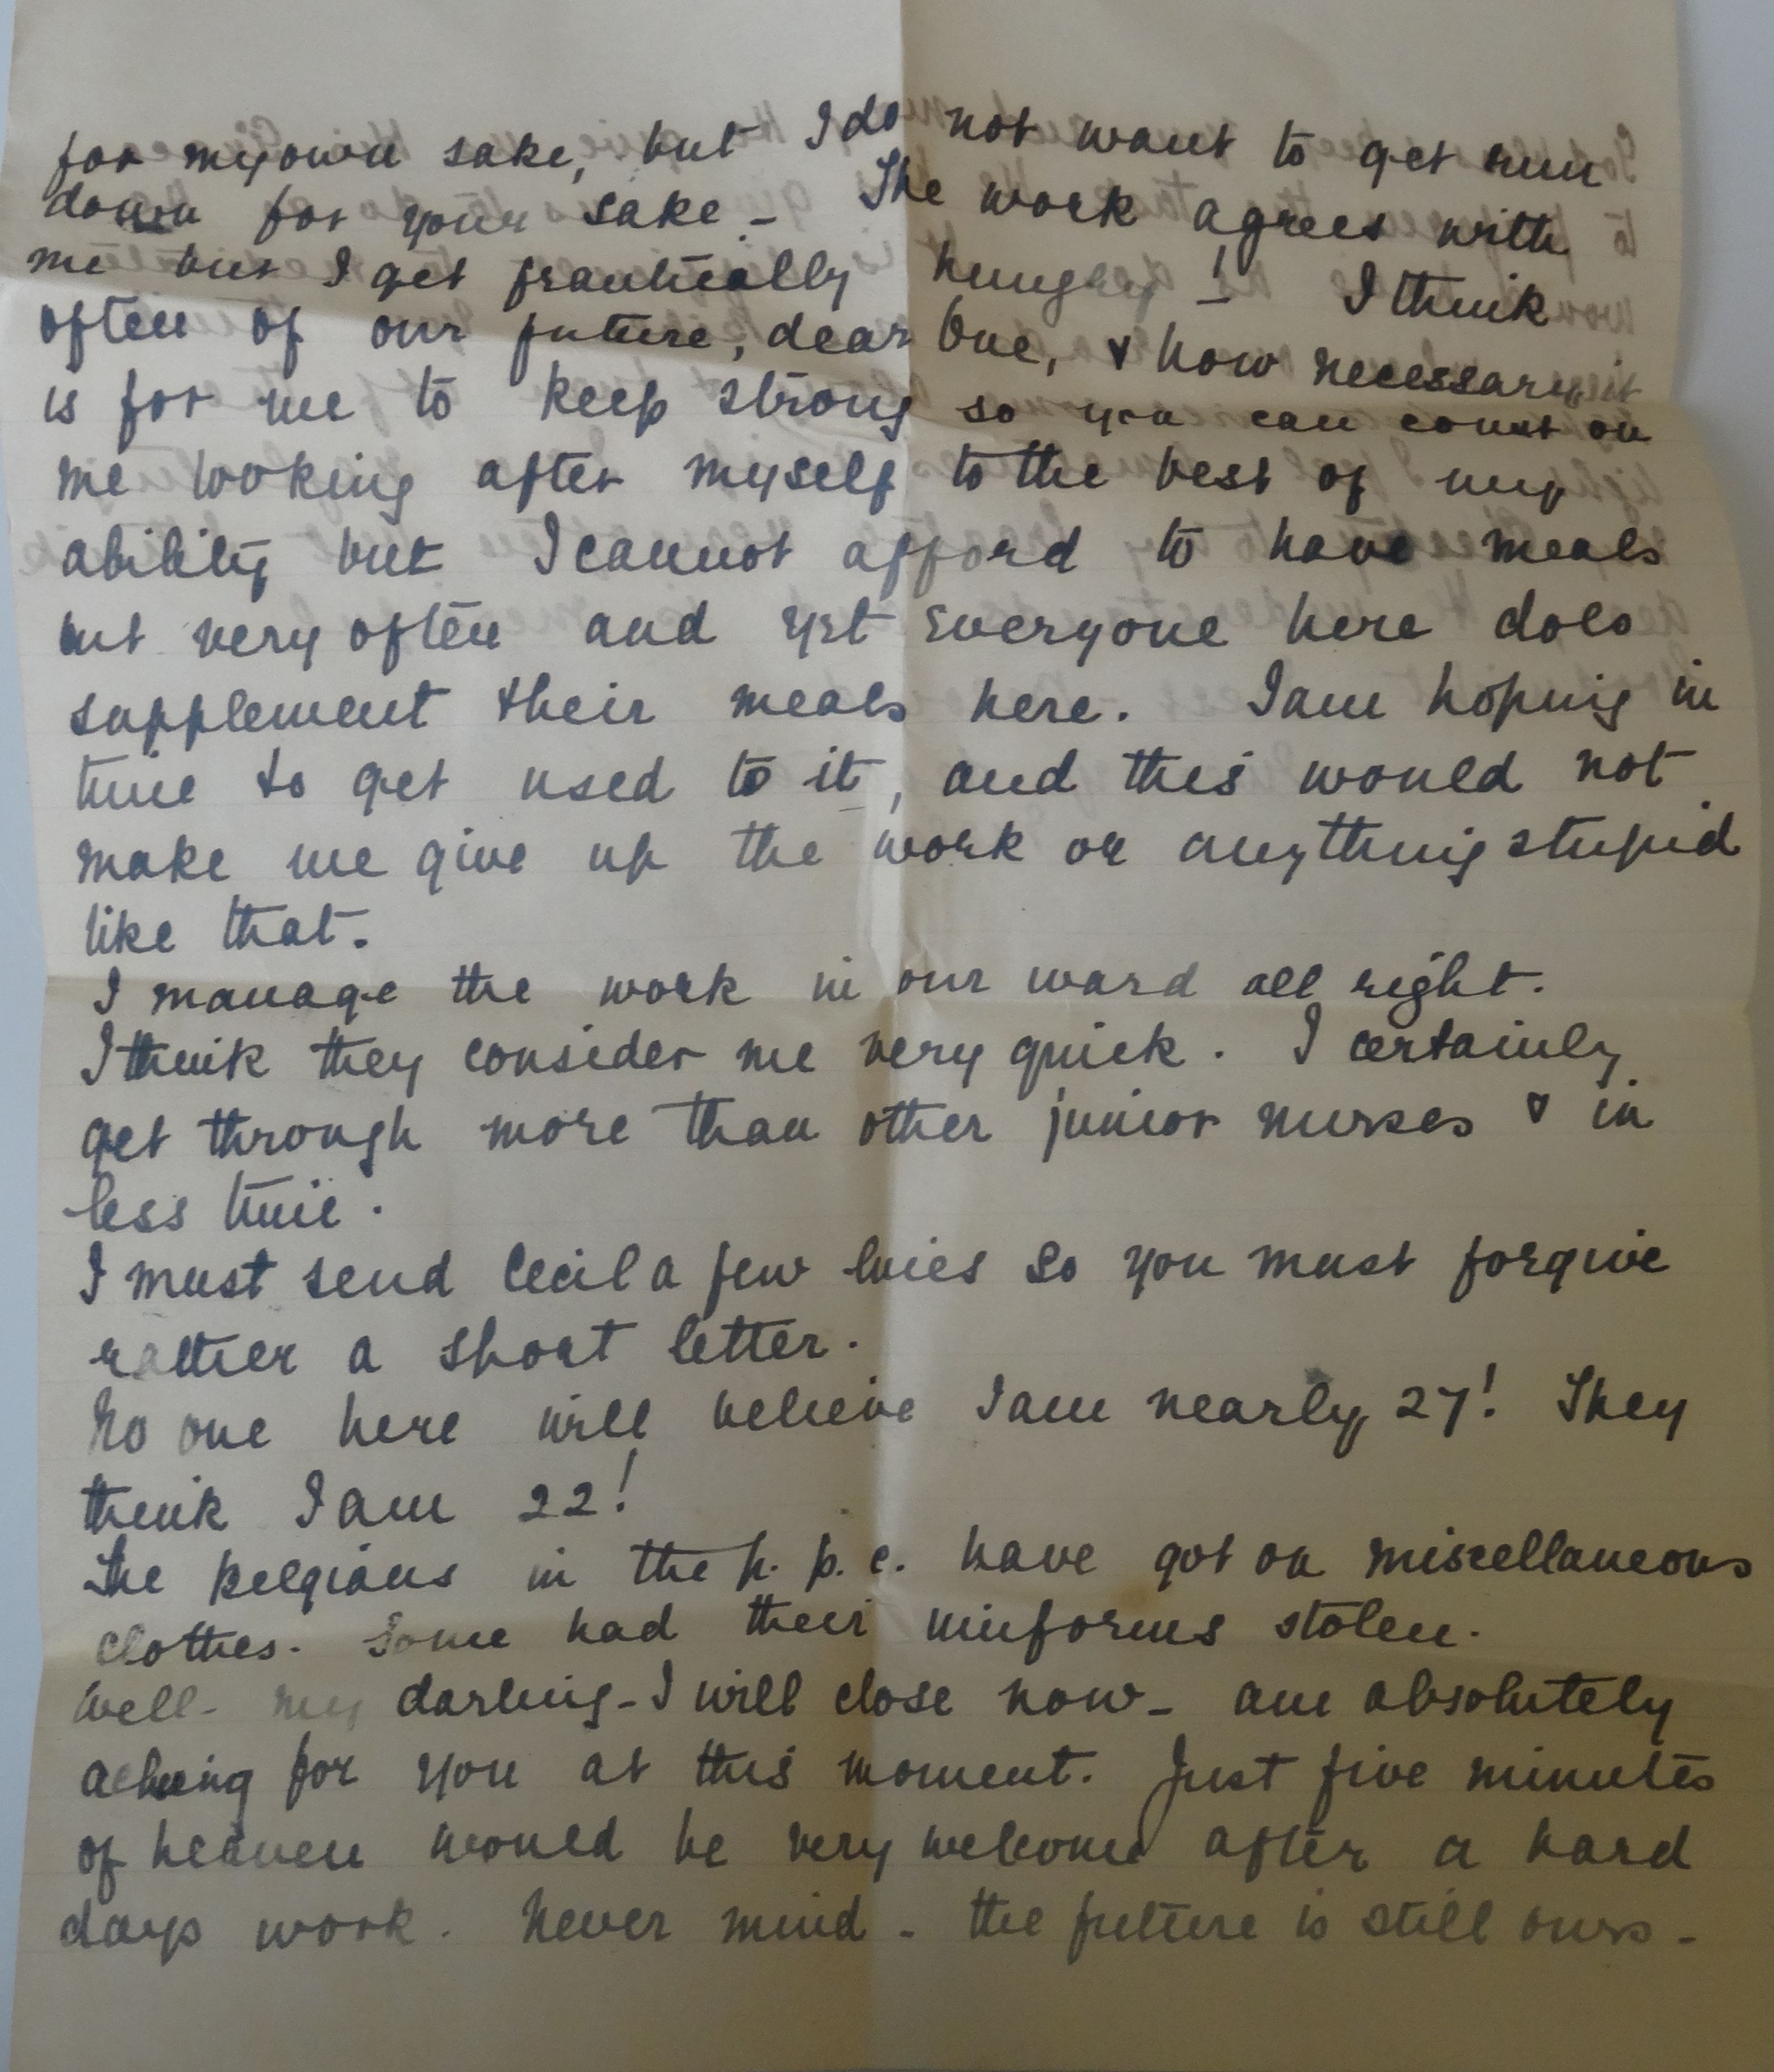 for my own sake, but I do not want to get run
down for your sake - The work agrees with
me but I get frantically hungry! - I think
often of our future, dear one, & how necessary it
is for me to keep strong so you can count on
me looking after myself to the best of my
ability but I cannot afford to have meals
out very often and yet everyone here does
supplement their meals here. I am hoping in
time to get used to it, and this would not
make me give up the work or anything stupid
like that.
I manage the work in our ward all right.
I think they consider me very quick. I certainly
get through more than other junior nurses & in
less time.
I must send Cecil a few lines so you must forgive
rather a short letter.
No one here will believe I am nearly 27! They
think I am 22!
The Belgians in the p. p. c. have got on miscellaneous
clothes. Some had their uniforms stolen.
Well - my darling - I will close now - am absolutely
aching for you at this moment. Just five minutes
of heaven would be very welcome after a hard
days work. Never mind - the future is still ours -